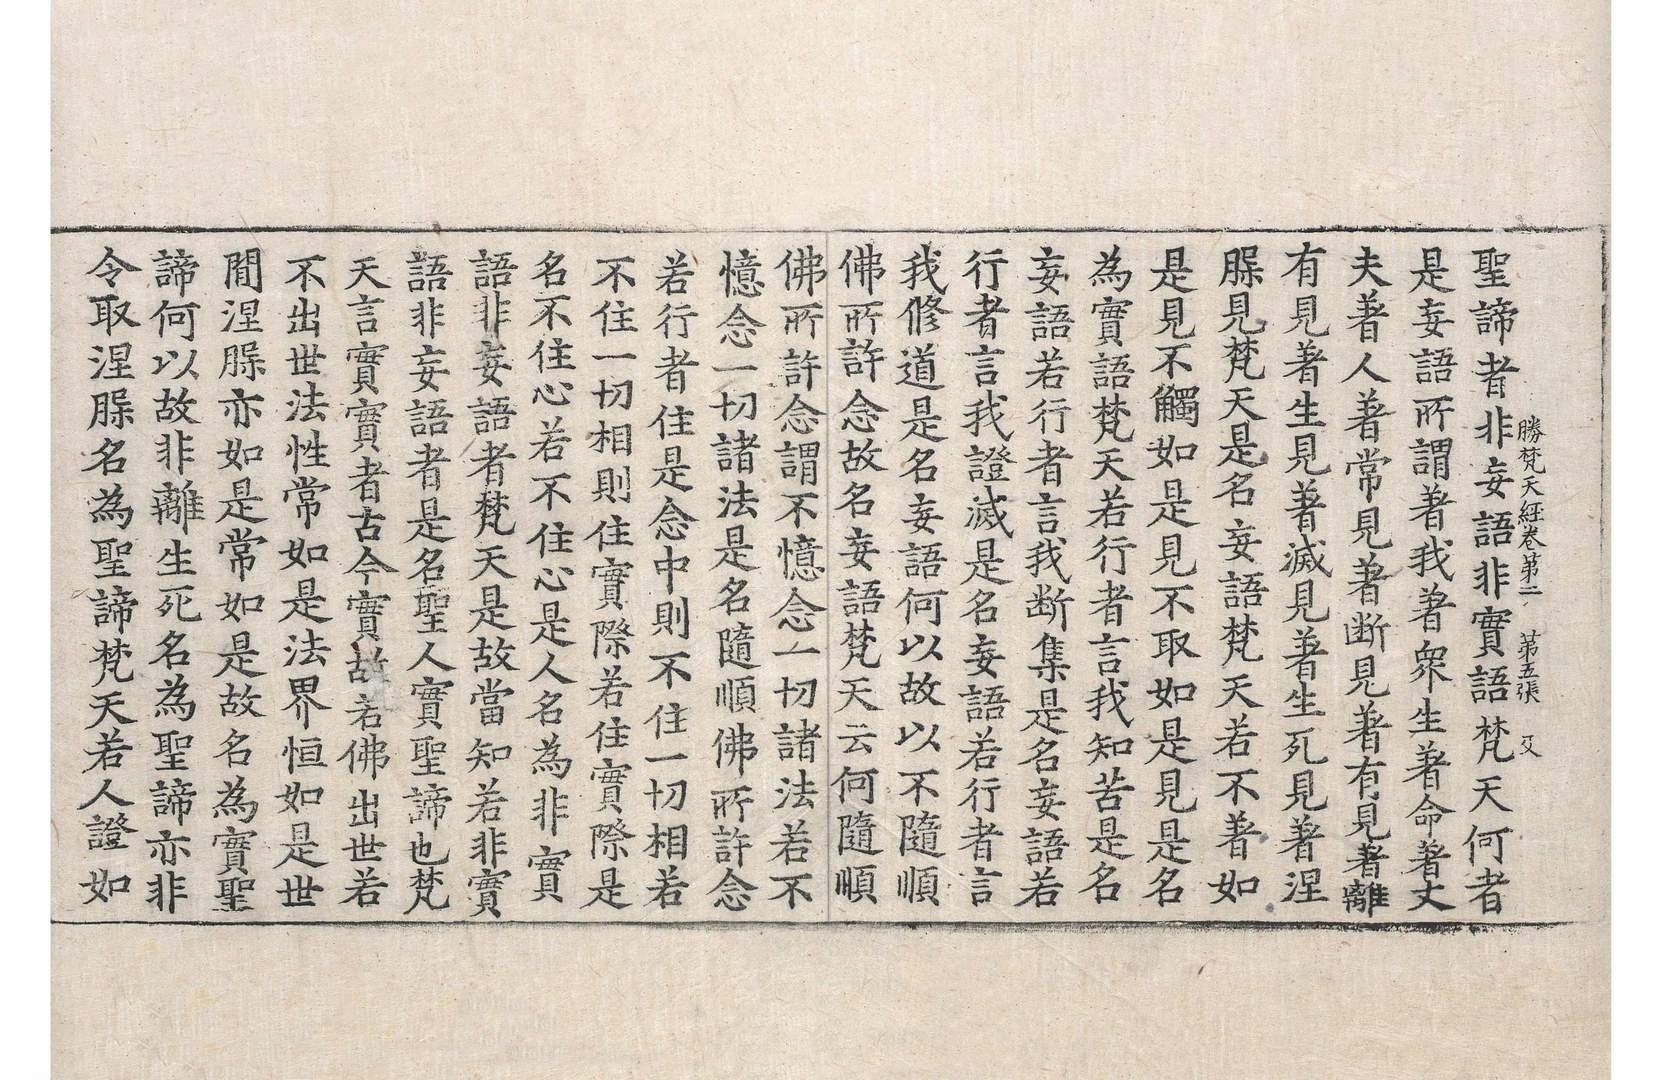 勝梵天經卷第二 第五張 㕛
聖諦者非妄語非實語梵天何者
是妄語所謂著我著衆生著命著丈
夫著人著常見著斷見著有見著離
有見著生見著滅見著生死見著涅
䐗見梵天是名妄語梵天若不著如
是見不觸如是見不取如是見是名
為實語梵天若行者言我知苦是名
妄語若行者言我断集是名妄語若
行者言我證滅是名妄語若行者言
我修道是名妄語何以故以不隨順
佛所許念故名妄語梵天云何隨順
佛所許念謂不憶念一切諸法若不
憶念一切諸法是名隨順佛所許念
若行者住是念中則不住一切相若
不住一切相則住實際若住實際是
名不住心若不住心是人名為非實
語非妄語者梵天是故當知若非實
語非妄語者是名聖人實聖諦也梵
天言實實者古今實故若佛出世若
不出世法性常如是法界恒如是世
間涅䐗亦如是常如是故名為實聖
諦何以故非離生死名為聖諦亦非
令取涅䐗名為聖諦梵天若人證如